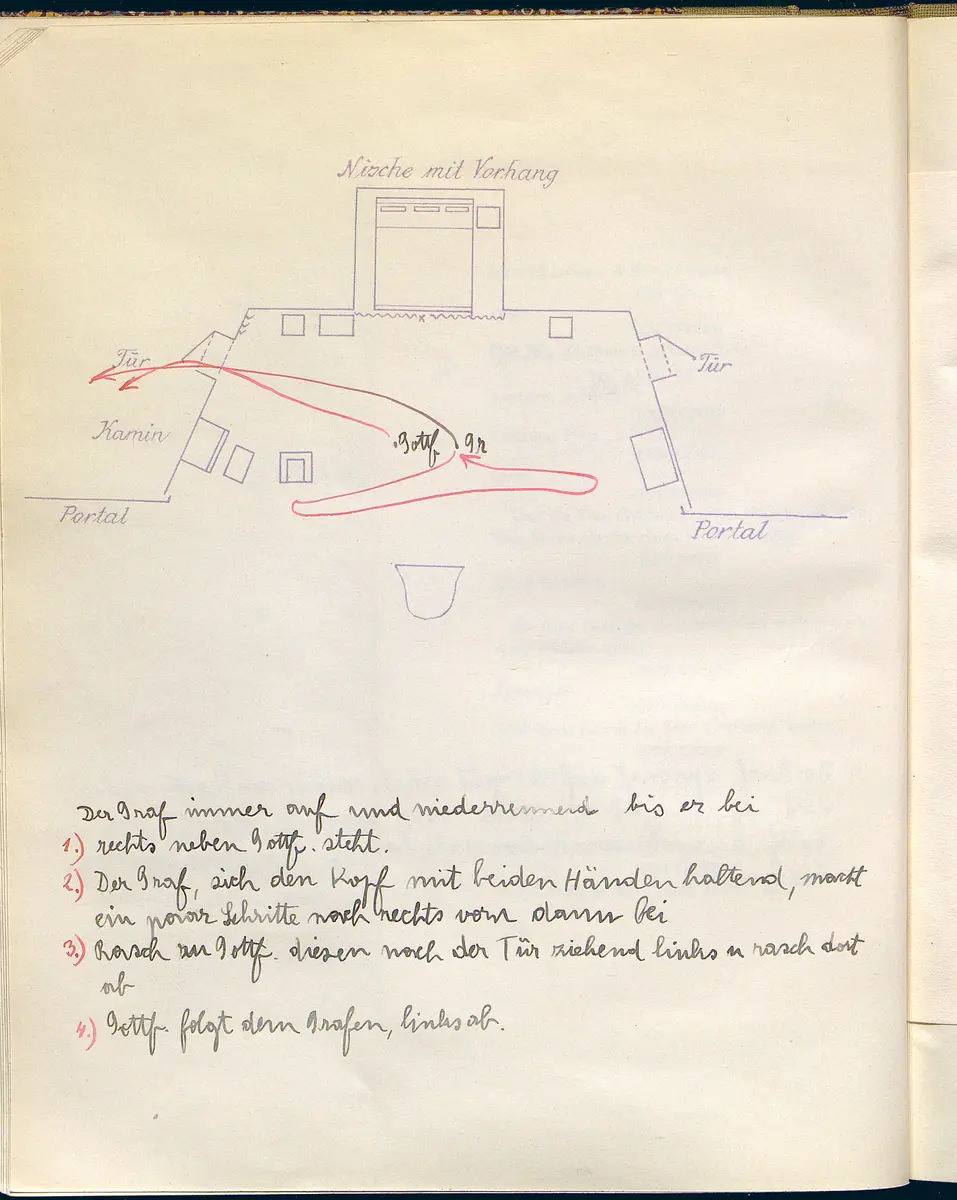 Nische mit Vorhang
Tür
Tür
Kamin
Gottf. Gr
Portal
Portal
Der Graf immer auf und niederrennend bis er bei
1.) rechts neben Gottf. steht.
2.) Der Graf, sich den Kopf mit beiden Händen haltend, macht
ein paar Schritte nach rechts vorn dann bei
3.) Rasch zu Gottf. diesen nach der Tür ziehend links u rasch dort
ab
4.) Gottf. folgt dem Grafen, links ab.